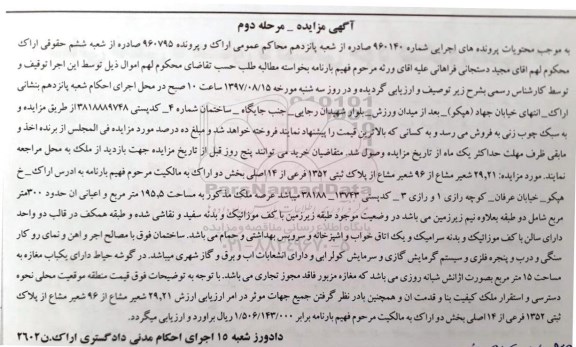 آگهی مزایده _ مرحله دوم
به موجب محتویات پرونده های اجرایی شماره ۹۶۰۱۴۰ صادره از شعبه پانزدهم محاکم عمومی اراک و پرونده ۹۶۰۷۹۵ صادره از شعبه ششم حقوقی اراک
محکوم لهم اقای مجید دستجانی فراهانی علیه اقای ورثه مرحوم فهیم بارنامه بخواسته مطالبه طلب حسب تقاضای محکوم لهم اموال ذیل توسط این اجرا توقیف و
توسط کارشناس رسمی بشرح زیر توصیف و ارزیابی گردیده و در روز سه شنبه مورخه ۱۳۹۷/۰۸/۱۵ ساعت ۱۰ صبح در محل اجرای احکام شعبه پانزدهم بنشانی
اراک_ انتهای خیابان جهاد (هپکو)_ بعد از میدان ورزش_ بلوار شهیدان رجایی_ جنب جایگاه _ ساختمان شماره ۴_ کدپستی ۳۸۱۸۸۸۹۷۴۸ از طریق مزایده و
به سبک چوب زنی به فروش می رسد و به کسانی که بالاترین قیمت را پیشنهاد نمایند فروخته خواهد شد و مبلغ ده درصد مورد مزایده فی المجلس از برنده اخذ و
مابقی ظرف مهلت حداکثر یک ماه از تاریخ مزایده وصول شد. متقاضیان خرید می توانند پنج روز قبل از تاریخ مزایده جهت بازدید از ملک به محل مراجعه
نمایند. مورد مزایده: ۲۹,۲۱ شعیر مشاع از ۹۶ شعیر مشاع از پلاک ثبتی ۱۳۵۲ فرعی از ۱۴ اصلی بخش دو اراک به مالکیت مرحوم فهیم بارنامه به ادرس اراک_ خ
هپکو_ خیابان عرفان_ کوچه رازی ۱ و رازی ۳_ کدپستی ۱۳۷۴۳_۳۸۱۸۸ میباشد عرصه ملک مذکور به مساحت ۱۹۵,۵ متر مربع و اعیانی ان حدود ۳۰۰متر
مربع شامل دو طبقه بعلاوه نیم زیرزمین می باشد در وضعیت موجود طبقه زیرزمین با کف موزائیک و بدنه سفید و نقاشی شده و طبقه همکف در قالب دو واحد
دارای سالن با کف موزائیک و بدنه سرامیک و یک اتاق خواب و اشپزخانه، سرویس بهداشتی و حمام می باشد. ساختمان فوق با مصالح اجر و اهن و نمای رو کار
سنگی و درب و پنجره فلزی و سیستم گرمایش گازی و سرمایش کولر ابی و دارای انشعابات اب و برق و گاز شهری میباشد. در گوشه حیاط دارای یکباب مغازه به
مساحت ۱۵ متر مربع بصورت اژانش شبانه روزی می باشد که مغازه مزبور فاقد مجوز تجاری می باشد. با توجه به توضیحات فوق قیمت منطقه موقعیت محلی نحوه
دسترسی و استقرار ملک کیفیت بنا و قدمت ان و همچنین بادر نظر گرفتن جمیع جهات موثر در امر ارزیابی ارزش ۲۹,۲۱ شعیر مشاع از ۹۶ شعیر مشاع از پلاک
ثبتی ۱۳۵۲ فرعی از ۱۴ اصلی بخش دو اراک به مالکیت مرحوم فهیم بارنامه برابر ۱/۵۰۶/۱۴۳/۰۰۰ ریال براورد و ارزیابی میگردد.
دادورز شعبه ۱۵ اجرای احکام مدنی دادگستری اراک.ن۲۶۰۲